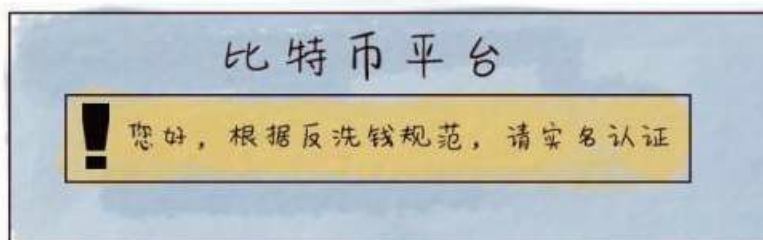 比特币平台
您好，根据反洗钱规范，请实名认证